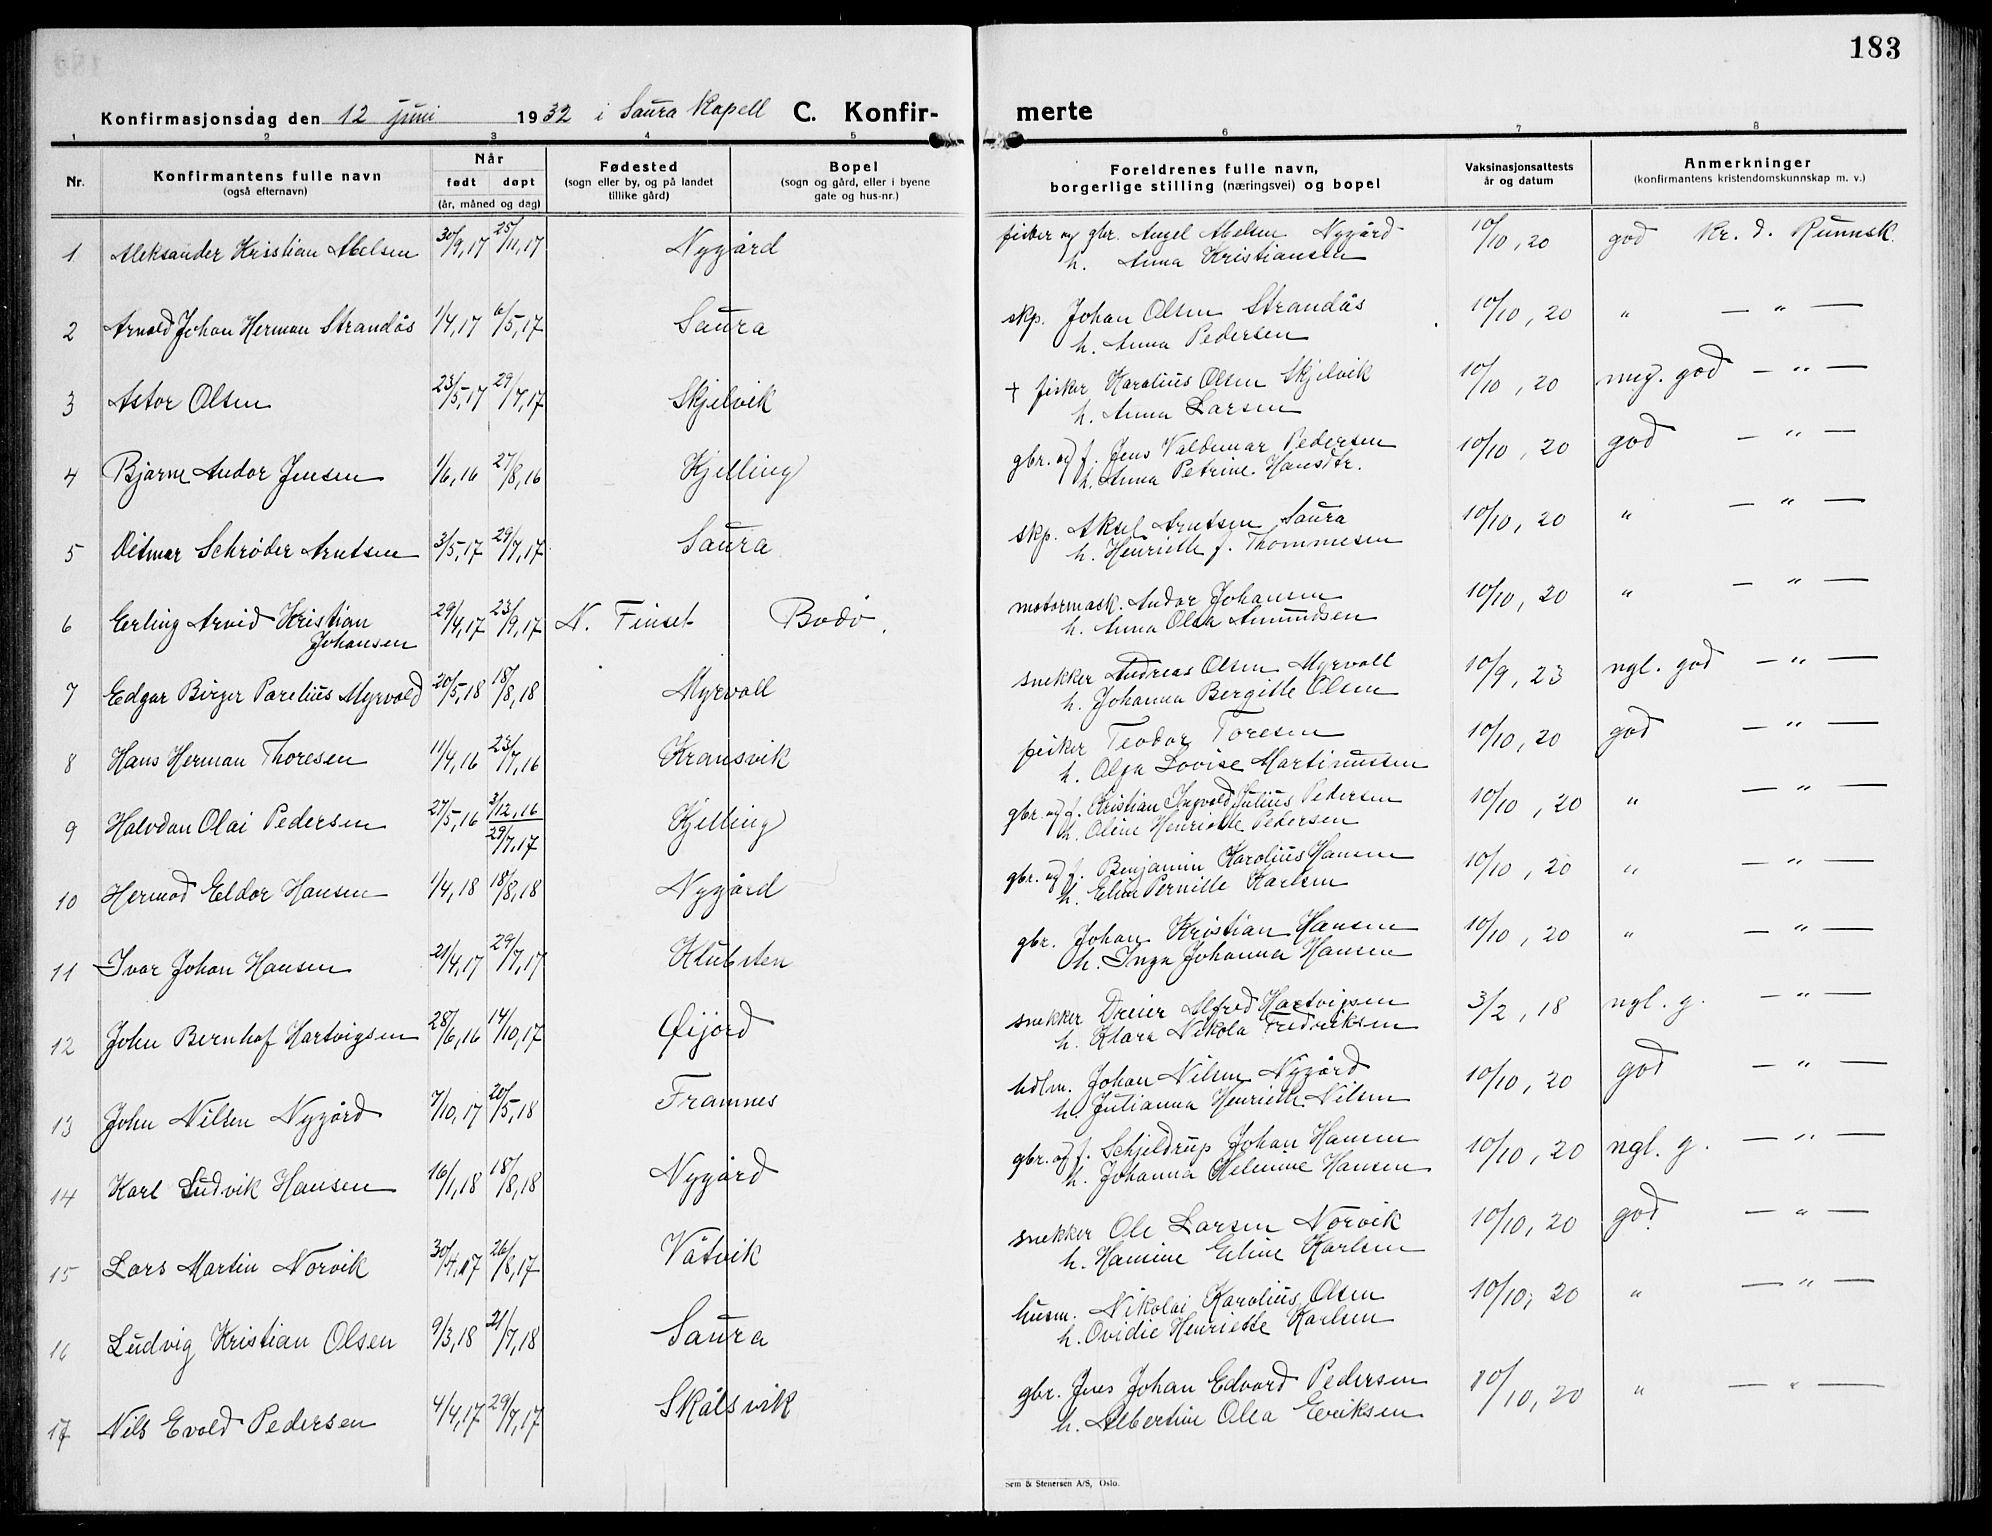 183
Konfirmasjonsdag den 12 juni 1932 i Saura Kapell C. Konfir- merte
1 2 3 4 5 6 7 8
Nr.
Konfirmantens fulle navn
(også efternavn)
Når
født døpt
(år, måned og dag)
Fødested
(sogn eller by, og på landet
tillike gård)
Bopel
(sogn og gård, eller i byene
gate og hus-nr.)
Foreldrenes fulle navn,
borgerlige stilling (næringsvei) og bopel
Vaksinasjonsattests
år og datum
Anmerkninger
(konfirmantens kristendomskunnskap m. v.)
1 Aleksander Kristian Abelsen 30/9,17 25/11,17 Nygård fisker og gbr. Angel Abelsen Nygård 10/10, 20 god Kr. d. Kunnsk.
h. Anna Kristiansen
2 Arnold Johan Herman Strandås 1/4,17 6/5,17 Saura skp. Johan Olsen Strandås 10/10, 20 " — " —
h. Anna Pedersen
3 Astor Olsen 23/5,17 29/7,17 Skjelvik + fisker Karolius Olsen Skjelvik 10/10, 20 meg. god — " —
h. Anna Larsen
4 Bjarne Andor Jensen 1/6,16 27/8,16 Kjelling gbr. og f. Jens Valdemar Pedersen 10/10, 20 god — " —
h. Anna Petrine Hansdtr.
5 Ditmar Schrøder Arntsen 3/5,17 29/7,17 Saura skp. Aksel Arntsen Saura 10/10, 20 " — " —
h. Henriette f. Thommesen
6 Erling Arvid Kristian 29/4,17 23/9,17 N. Finset Bodø. motormask. Andor Johansen 10/10, 20 " — " —
Johansen h. Anna Olea Amundsen
7 Edgar Birger Parelius Myrvold 20/5,18 18/8,18 Myrvoll snekker Andreas Olsen Myrvoll 10/9, 23 ngl. god — " —
h. Johanna Bergitte Olsen
8 Hans Herman Thoresen 11/4,16 23/7,16 Kransvik fisker Teodor Toresen 10/10, 20 god — " —
h. Olga Lovise Martinussen
9 Halvdan Olai Pedersen 27/5,16 3/12,16 Kjelling gbr. og f. Kristian Ingvald Julius Pedersen 10/10, 20 " — " —
29/7,17 h. Oline Henriette Pedersen
10 Hermod Eldor Hansen 1/4,18 18/8,18 Nygård gbr. og f. Benjamin Karolius Hansen 10/10, 20 " — " —
h. Eline Pernille Karlsen
11 Ivar Johan Hansen 21/4,17 29/7,17 Klubsten gbr. Johan Kristian Hansen 10/10, 20 " — " —
h. Inga Johanna Hansen
12 John Bernhof Hartvigsen 28/6,16 14/10,17 Øijord snekker Dreier Alfred Hartvigsen 3/2, 18 ngl. g. — " —
h. Klara Nikola Fredriksen
13 John Nilsen Nygård 7/10,17 20/5,18 Framnes hdlm. Johan Nilsen Nygård 10/10, 20 god — " —
h. Julianna Henriette Nilsen
14 Karl Ludvik Hansen 16/1,18 18/8,18 Nygård gbr. og f. Schjeldrup Johan Hansen 10/10, 20 ngl. g. — " —
h. Johanna Helmine Hansen
15 Lars Martin Norvik 30/4,17 26/8,17 Våtvik snekker Ole Larsen Norvik 10/10, 20 god — " —
h. Hanine Eline Karlsen
16 Ludvig Kristian Olsen 9/3,18 21/7,18 Saura husm. Nikolai Karolius Olsen 10/10, 20 " — " —
h. Ovidie Henriette Karlsen
17 Nils Evald Pedersen 4/4,17 29/7,17 Skålsvik gbr. Jens Johan Edvard Pedersen 10/10, 20 " — " —
h. Albertine Olea Eriksen
Sem & Stenersen A/S, Oslo.